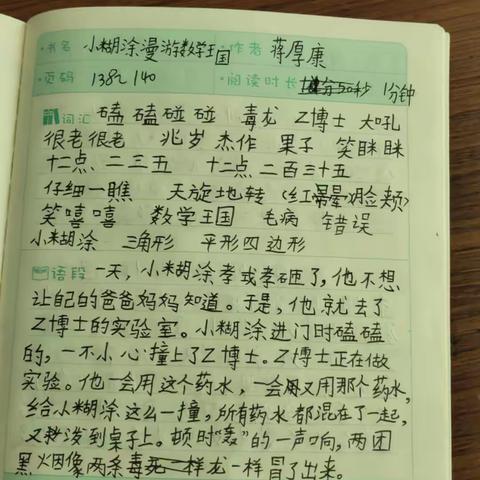 ·书名 小糊涂漫游数学王国 ·作者 蒋厚康
·页码 138~140 ·阅读时长 1分钟
词汇 磕磕碰碰 毒龙 Z博士 大吼
很老很老 兆岁 杰作 果子 笑眯眯
十二点二三五 十二点二百三十五
仔细一瞧 天旋地转 (红晕 脸颊)
笑嘻嘻 数学王国 毛病 错误
小糊涂 三角形 平形四边形
语段 一天,小糊涂考砸了,他不想
让自己的爸爸妈妈知道。于是,他就去了
Z博士的实验室。小糊涂进门时磕磕
的,一不小心撞上了Z博士。Z博士正在做
实验。他一会用这个药水,一会又用那个药水,
给小糊涂这么一撞,所有药水都混在了一起,
又泼到桌子上。顿时“轰”的一声响,两团
黑烟因像两条毒龙一样冒了出来。